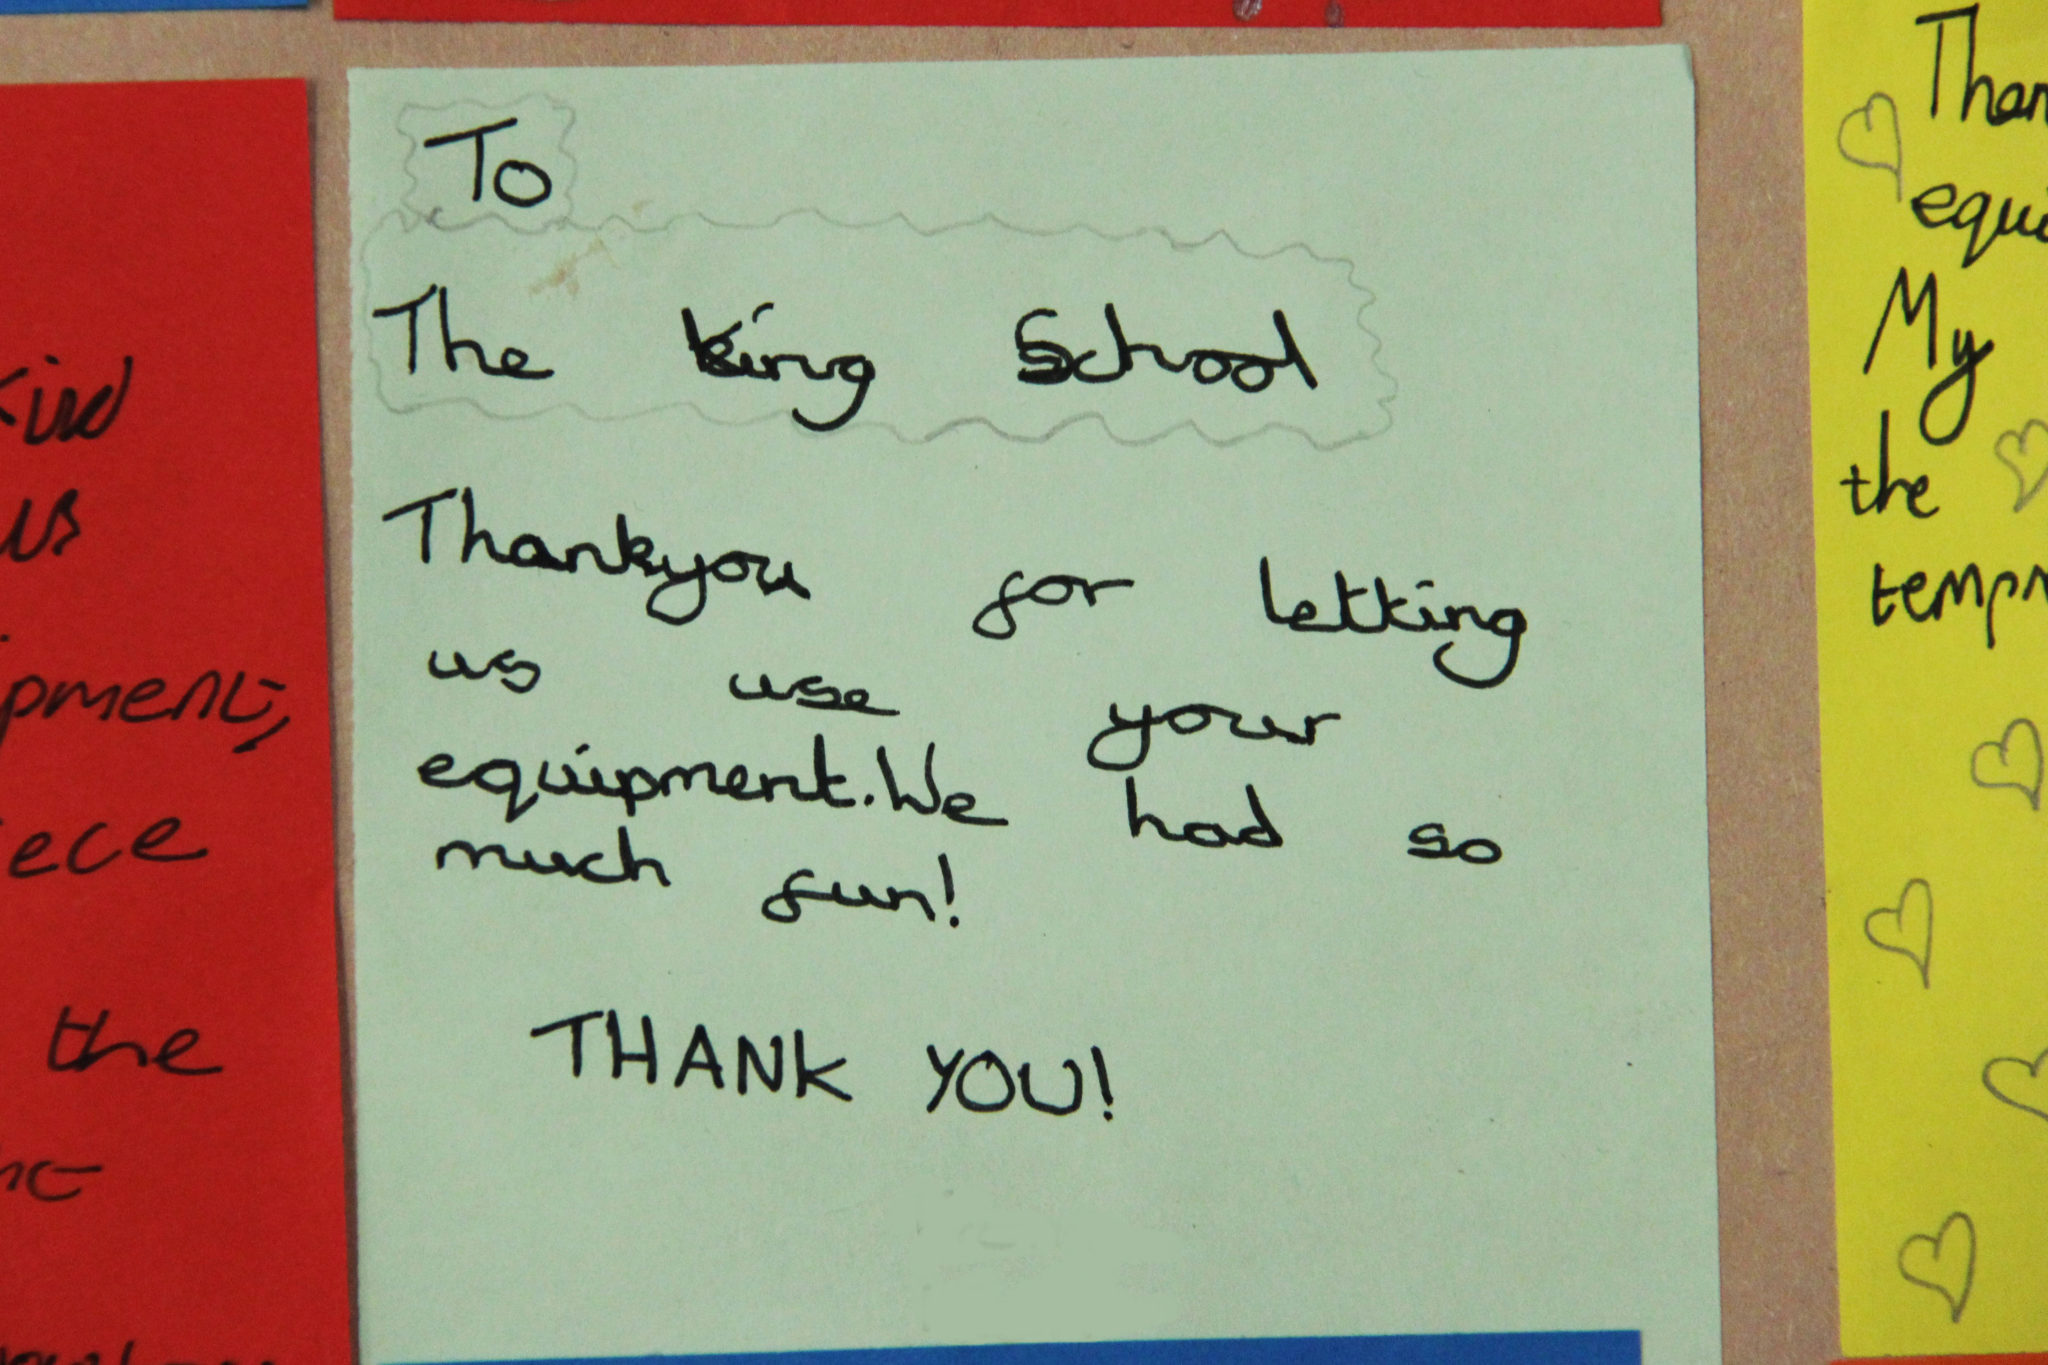 To
The king School
Thankyou for letting
us use your
equipment. We had so
much fun!
THANK YOU!
kind
us
ipment,
ece
the
Than
equi
My
the
temp